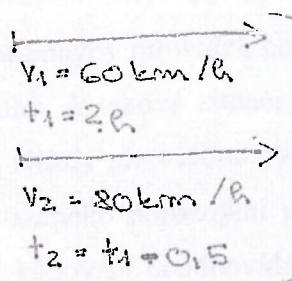 V1 = 60 km/h
t1 = 2h
V2 = 80km/h
t2 = t1 - 0,5